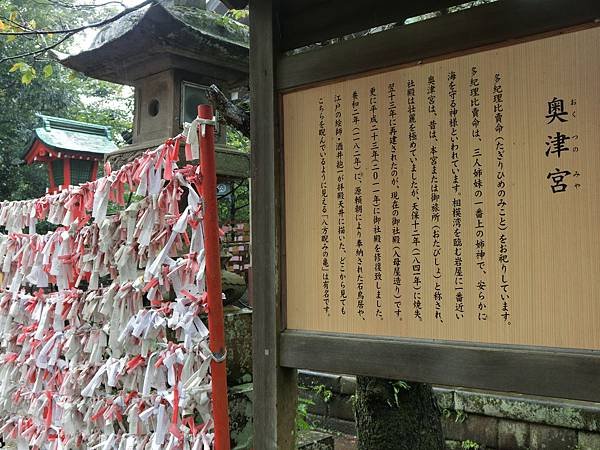 奥津宮
おくつのみや
多紀理比賣命（たぎりひめのみこと）をお祀りしています。
多紀理比賣命は、三人姉妹の一番上の姉神で、安らかに
海を守る神様といわれています。相模湾を臨む岩屋に一番近い
奥津宮は、昔は、本宮または御旅所（おたびしょ）と称され、
社殿は壮麗を極めていましたが、天保十二年（一八四一年）に焼失。
翌十三年に再建されたのが、現在の御社殿（入母屋造り）です。
更に平成二十三年（二〇一一年）に御社殿を修復致しました。
養和二年（一一八二年）に、源頼朝により奉納された石鳥居や、
江戸の絵師・酒井抱一が拝殿天井に描いた、どこから見ても
こちらを睨んでいるように見える「八方睨みの亀」は有名です。